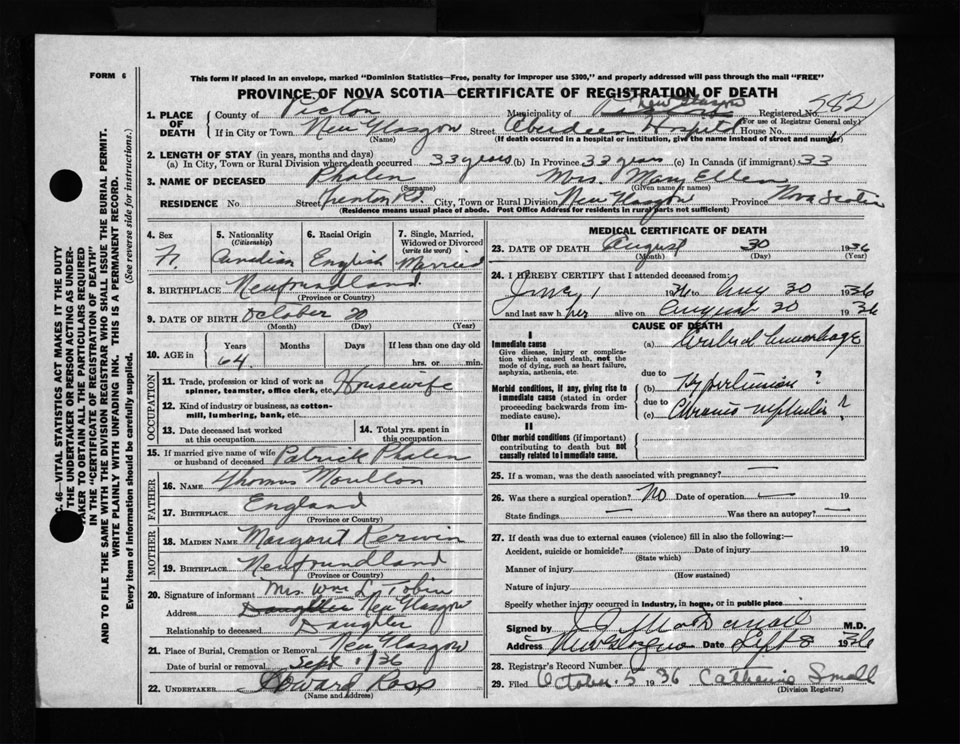 FORM 6
This form if placed in an envelope, marked "Dominion Statistics—Free, penalty for improper use $300," and properly addressed will pass through the mail "FREE"
PROVINCE OF NOVA SCOTIA—CERTIFICATE OF REGISTRATION OF DEATH
1. PLACE OF DEATH
County of Pictou Municipality of New Glasgow Registered No. 782
(For use of Registrar General only)
If in City or Town New Glasgow Street Aberdeen Hospital House No.
(Name) (If death occurred in a hospital or institution, give the name instead of street and number)
2. LENGTH OF STAY (in years, months and days)
(a) In City, Town or Rural Division where death occurred 33 years (b) In Province 33 years (c) In Canada (if immigrant) 33
3. NAME OF DECEASED Phalen Mrs. Mary Ellen
(Surname) (Given name or names)
RESIDENCE No. Street Trenton Rd. City, Town or Rural Division New Glasgow Province Nova Scotia
(Residence means usual place of abode. Post Office Address for residents in rural parts not sufficient)
4. Sex
F.
5. Nationality
(Citizenship)
Canadian
6. Racial Origin
English
7. Single, Married, Widowed or Divorced
(write the word)
Married
8. BIRTHPLACE Newfoundland
(Province or Country)
9. DATE OF BIRTH October 20
(Month) (Day) (Year)
10. AGE in
Years Months Days If less than one day old
64. hrs. or min.
OCCUPATION
11. Trade, profession or kind of work as spinner, teamster, office clerk, etc. Housewife
12. Kind of industry or business, as cotton-mill, lumbering, bank, etc.
13. Date deceased last worked at this occupation
14. Total yrs. spent in this occupation
15. If married give name of wife or husband of deceased Patrick Phalen
FATHER
16. NAME Thomas Moulton
17. BIRTHPLACE England
(Province or Country)
MOTHER
18. MAIDEN NAME Margaret Kerwin
19. BIRTHPLACE Newfoundland
(Province or Country)
20. Signature of informant Mrs. Wm L. Tobin
Address Daughter New Glasgow
Relationship to deceased Daughter
21. Place of Burial, Cremation or Removal New Glasgow
Date of burial or removal Sept 1/36
22. UNDERTAKER Howard Ross
(Name and address)
MEDICAL CERTIFICATE OF DEATH
23. DATE OF DEATH August 30 1936
(Month) (Day) (Year)
24. I HEREBY CERTIFY that I attended deceased from:
1 1936 to Aug 30 1936
and last saw her alive on August 30 1936
CAUSE OF DEATH
I
Immediate cause
Give disease, injury or complication which caused death, not the mode of dying, such as heart failure, asphyxia, asthenia, etc.
(a) Cerebral hemorrhage
due to
Morbid conditions, if any, giving rise to immediate cause (stated in order proceeding backwards from immediate cause).
(b) Hypertension ?
due to
(c) Chronic nephritis ?
II
Other morbid conditions (if important) contributing to death but not causally related to immediate cause.
25. If a woman, was the death associated with pregnancy? —
26. Was there a surgical operation? No Date of operation — 19
State findings — Was there an autopsy? —
27. If death was due to external causes (violence) fill in also the following:—
Accident, suicide or homicide? Date of injury 19
(State which)
Manner of injury
(How sustained)
Nature of injury
Specify whether injury occurred in industry, in home, or in public place
Signed by M.D.
Address New Glasgow Date Sept 8 1936
28. Registrar's Record Number
29. Filed October 5 1936 Catherine Small
(Division Registrar)
C. 46- VITAL STATISTICS ACT MAKES IT THE DUTY
THE UNDERTAKER OR PERSON ACTING AS UNDER-
TAKER TO OBTAIN ALL THE PARTICULARS REQUIRED
IN THE "CERTIFICATE OF REGISTRATION OF DEATH"
AND TO FILE THE SAME WITH THE DIVISION REGISTRAR WHO SHALL ISSUE THE BURIAL PERMIT.
WRITE PLAINLY WITH UNFADING INK. THIS IS A PERMANENT RECORD.
Every item of information should be carefully supplied. (See reverse side for instructions.)